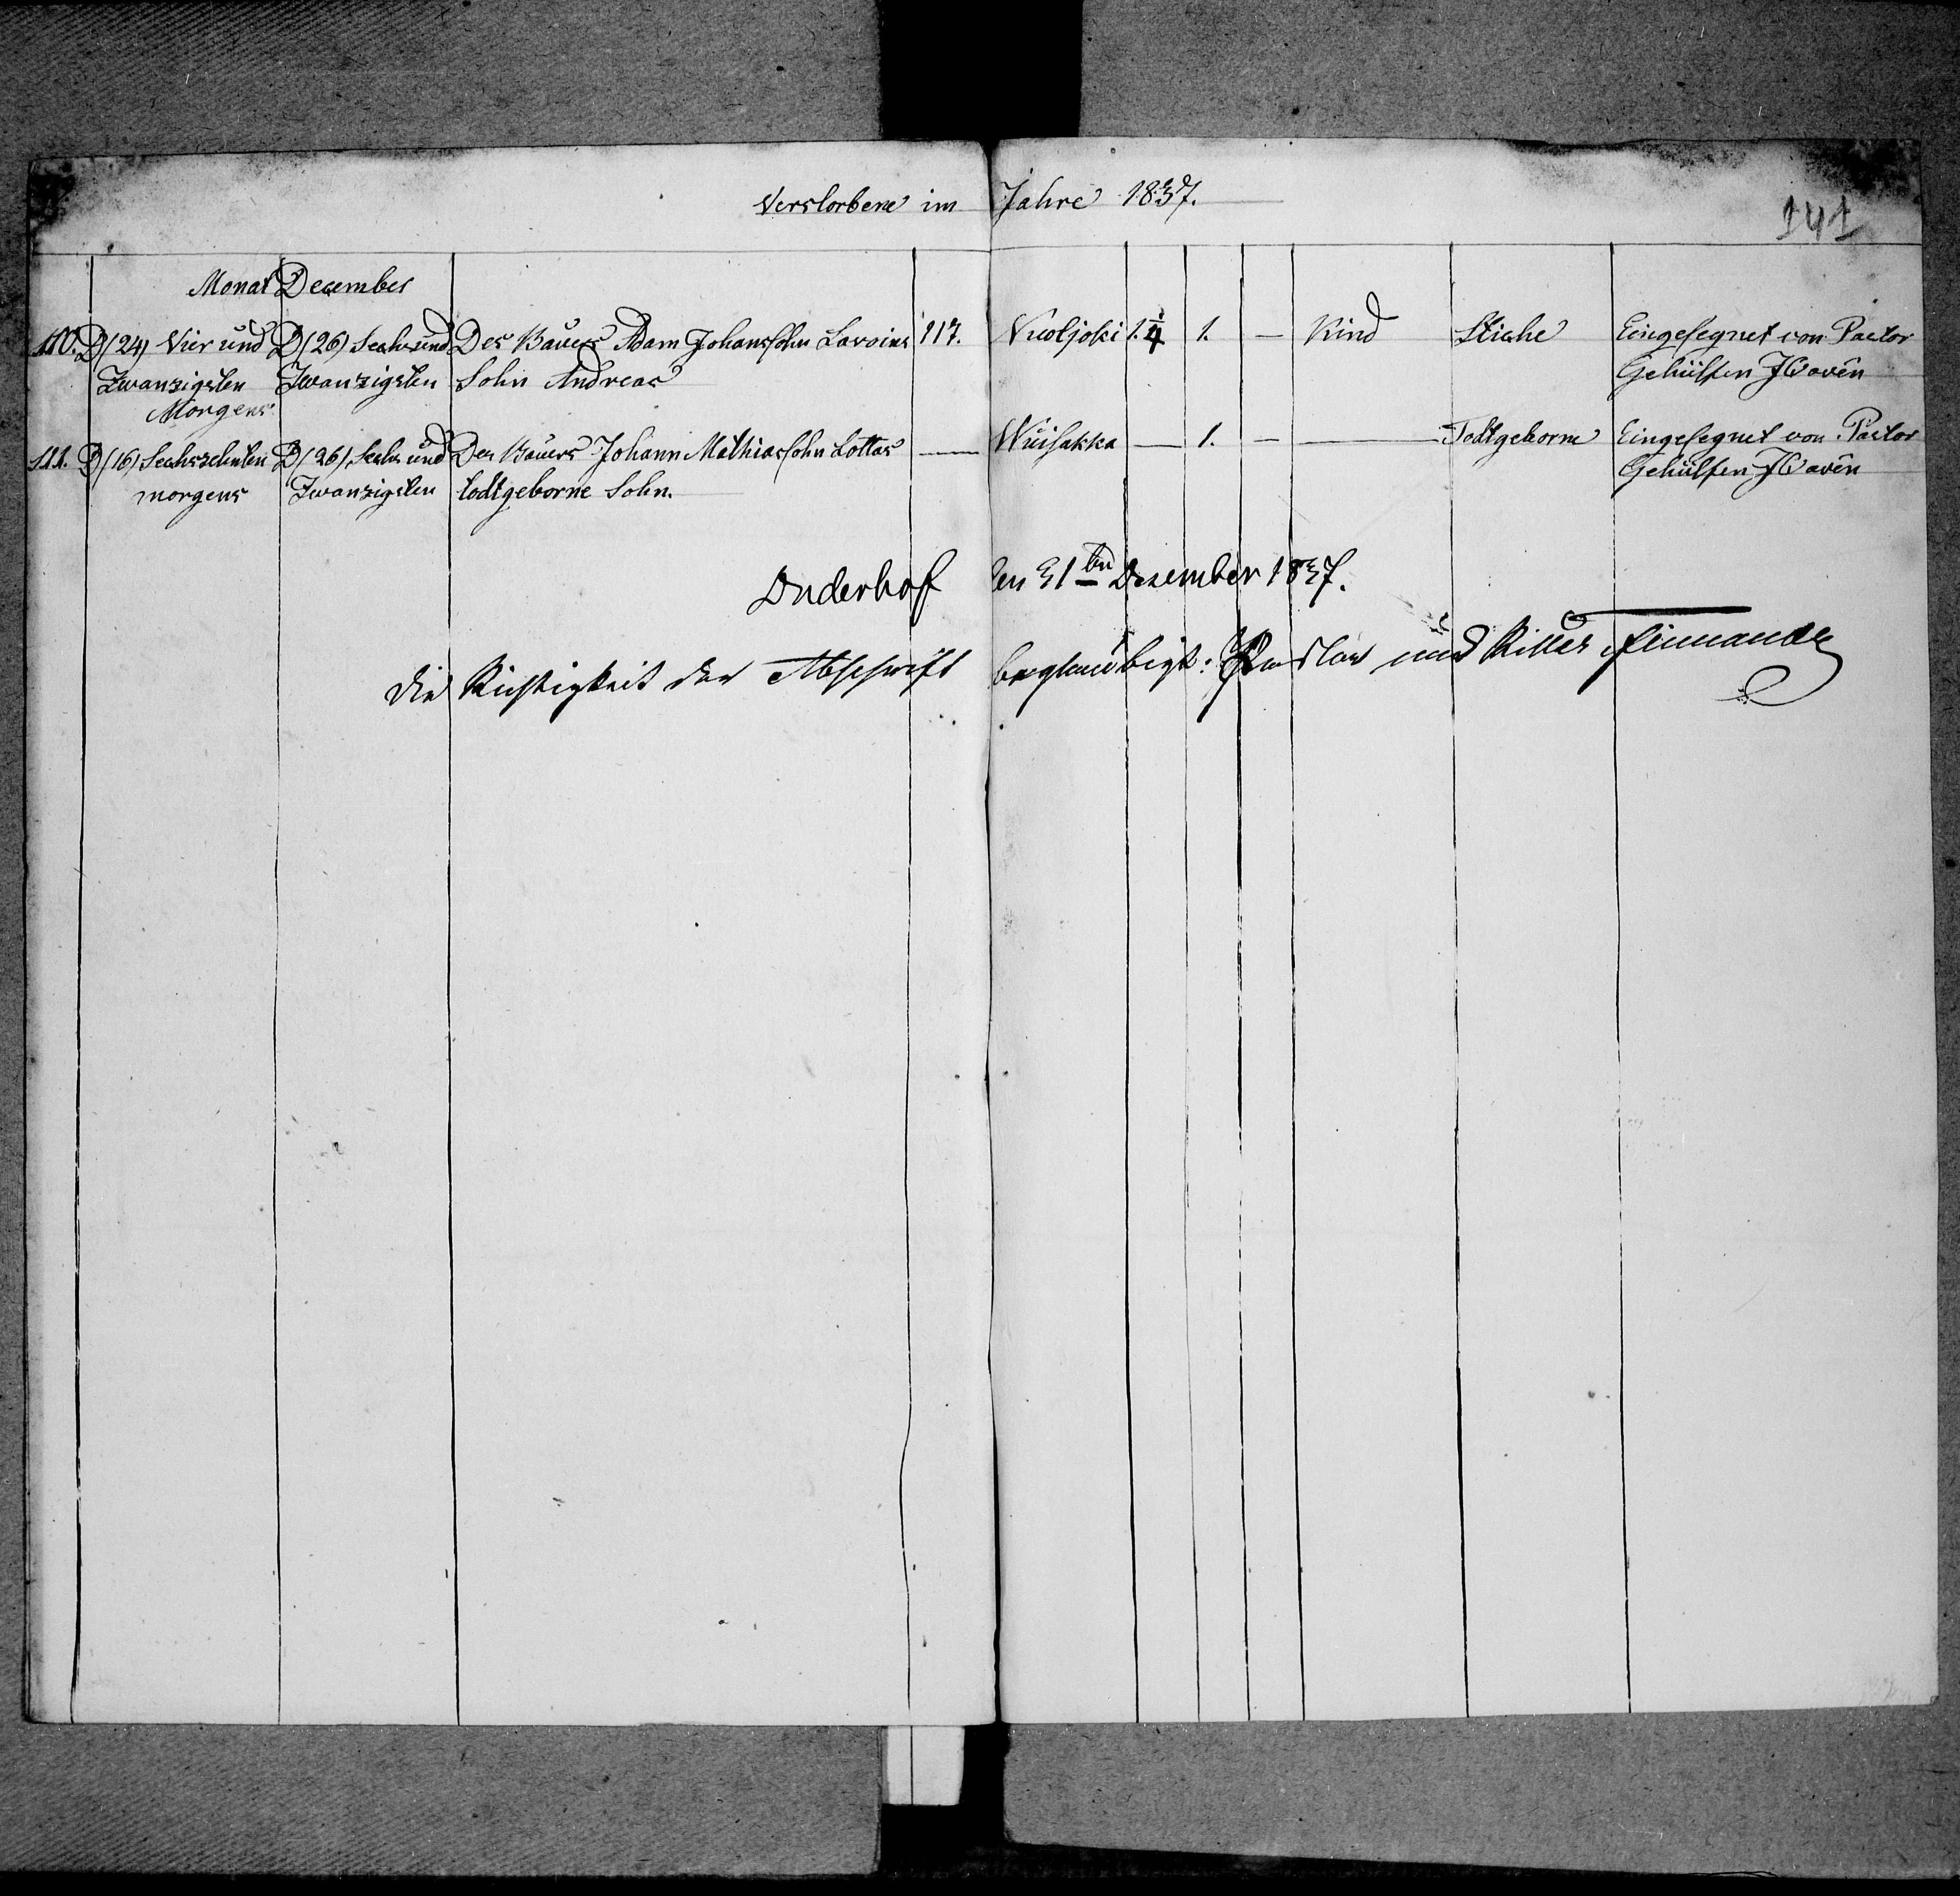 Verstorbene im Jahre 1837.
141
Monat December
110. D/24/ Vier und D/26/ Sechs und Des Bauers Adam Johanssohn Lavoins 117. Nuoljoki 1.¼ 1. — Kind Stiche Eingesegnet von Pastor
Zwanzigsten Zwanzigsten Sohn Andreas Gehülfen
Morgens
111. D/16/ Sechszehnten D/26/ Sechs und Des Bauers Johann Mathiassohn Lottas — Wuisakka — 1. — — Todtgeborne Eingesegnet von Pastor
morgens Zwanzigsten todtgeborne Sohn. Gehülfen
Duderhof den 31ten Dezember 1837.
Die Richtigkeit der Abschrift beglaubigt: Pastor und Ritter